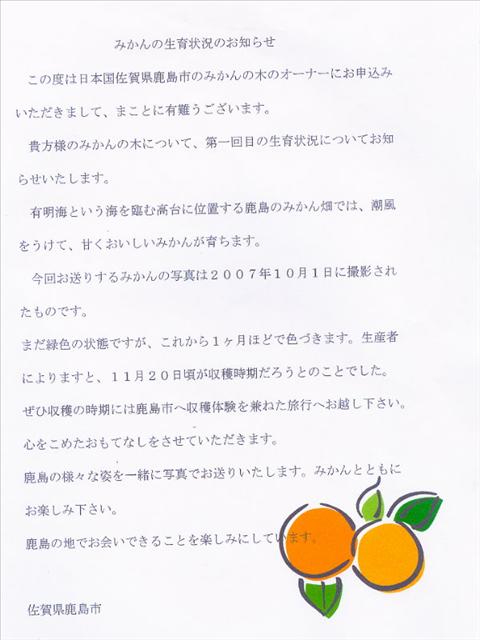 みかんの生育状況のお知らせ
この度は日本国佐賀県鹿島市のみかんの木のオーナーにお申込み
いただきまして、まことに有難うございます。
貴方様のみかんの木について、第一回目の生育状況についてお知
らせいたします。
有明海という海を臨む高台に位置する鹿島のみかん畑では、潮風
をうけて、甘くおいしいみかんが育ちます。
今回お送りするみかんの写真は２００７年１０月１日に撮影され
たものです。
まだ緑色の状態ですが、これから１ヶ月ほどで色づきます。生産者
によりますと、１１月２０日頃が収穫時期だろうとのことでした。
ぜひ収穫の時期には鹿島市へ収穫体験を兼ねた旅行へお越し下さい。
心をこめたおもてなしをさせていただきます。
鹿島の様々な姿を一緒に写真でお送りいたします。みかんとともに
お楽しみ下さい。
鹿島の地でお会いできることを楽しみにしています。
佐賀県鹿島市